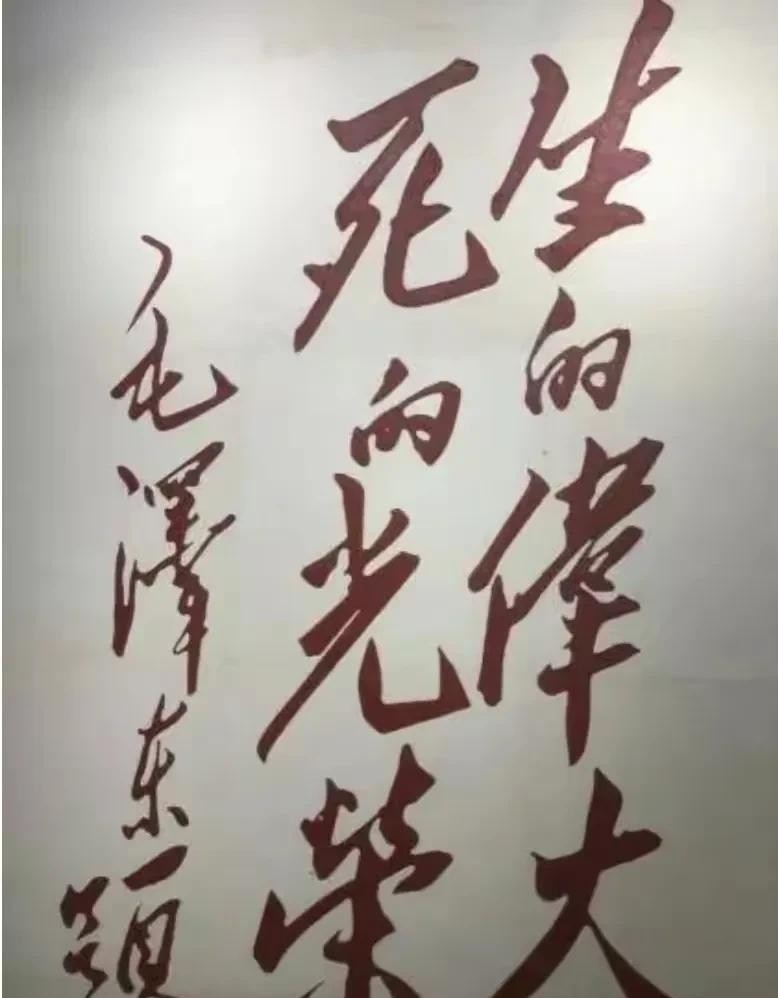 生的偉大
死的光荣
毛澤东题